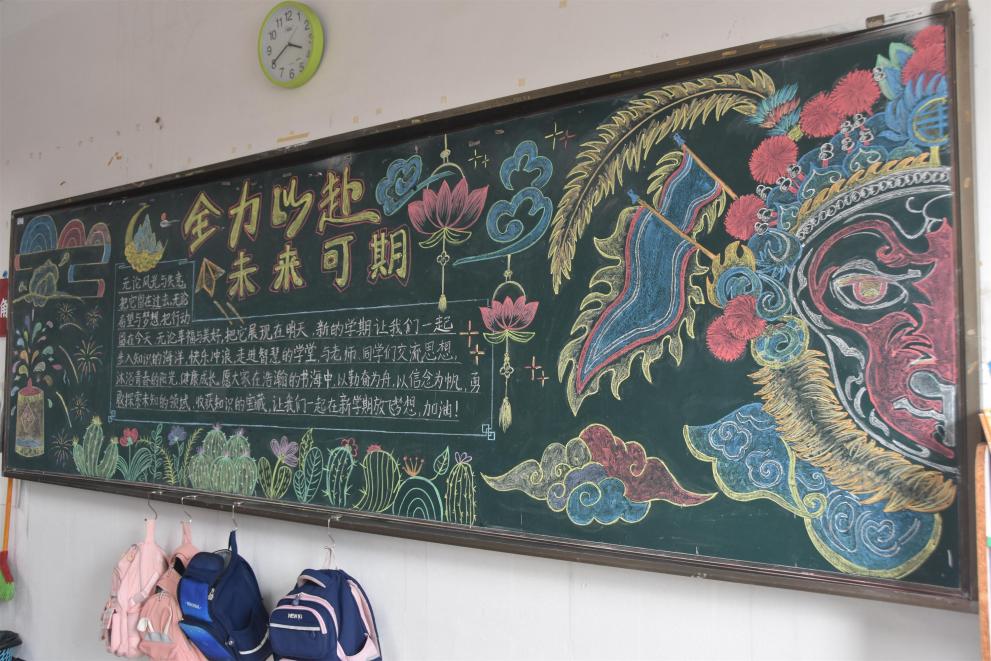 全力以赴
未来可期
无论风光与失意,
把它留在过去,无论
希望与梦想,把行动
留在今天,无论幸福与美好,把它展现在明天,新的学期让我们一起
步入知识的海洋,快乐冲浪,走进智慧的学堂,与老师、同学们交流思想,
沐浴青春的阳光,健康成长,愿大家在浩瀚的书海中,以勤奋为舟,以信念为帆,勇
敢探索未知的领域,收获知识的宝藏,让我们一起在新学期放飞梦想,加油!
12
1
2
3
4
5
6
7
8
9
10
11
角